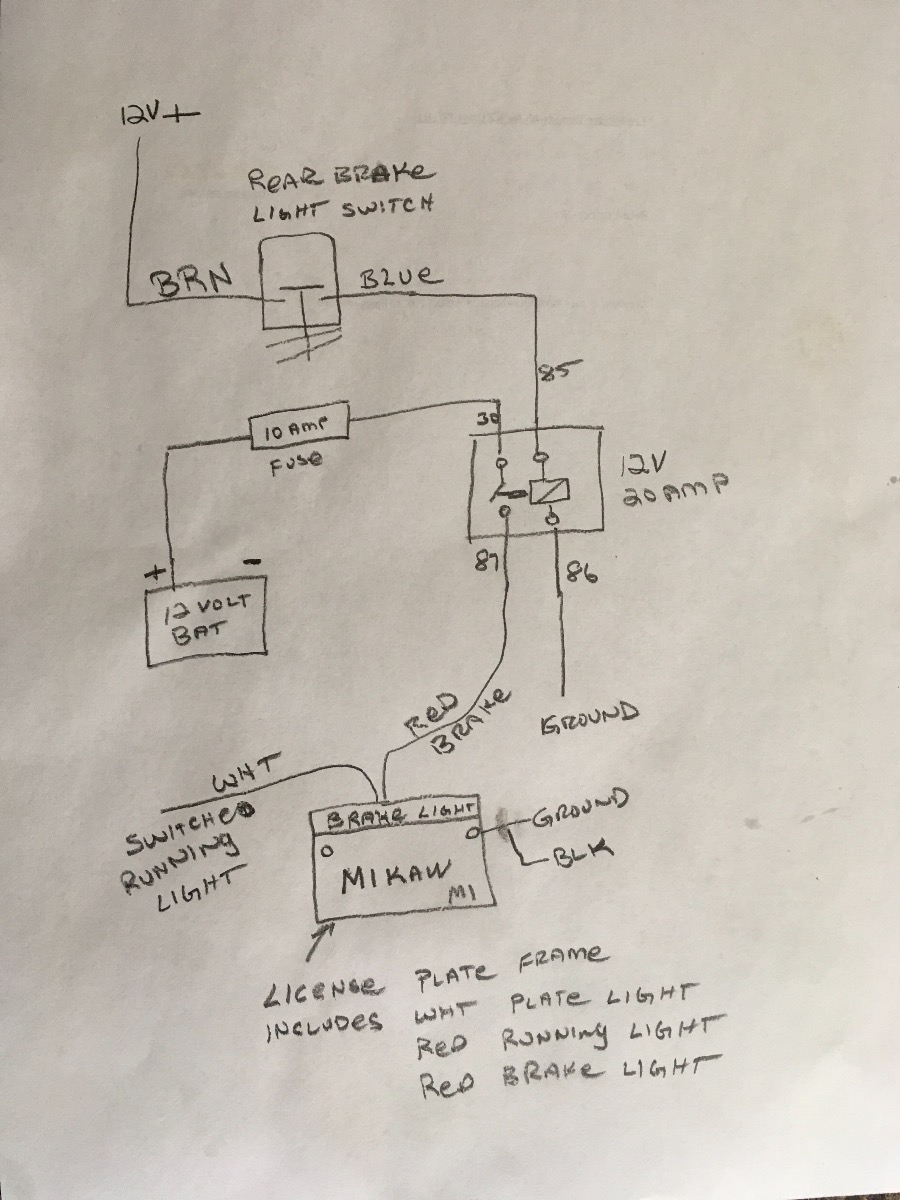 12V+
REAR BRAKe
LIGHT SWITCH
BRN
BLUe
85
30
10 AMP
FUSe
12V
20 AMP
87
86
+ -
12 VOLT
BAT
ReD
BRAKe
GROUND
WHT
SWITCHeD
RUNNING
LIGHT
BRAKe LIGHT
GROUND
BLK
MIKAW
MI
LICeNSe PLATe FRAMe
INCLUDeS WHT PLATe LIGHT
ReD RUNNING LIGHT
ReD BRAKe LIGHT